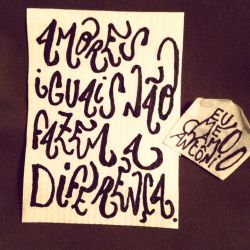 AMORES
iGUAIS NÃO
FAZEM A
DIFERENÇA.
EU
ME
CHAMO
ANTÔNIO